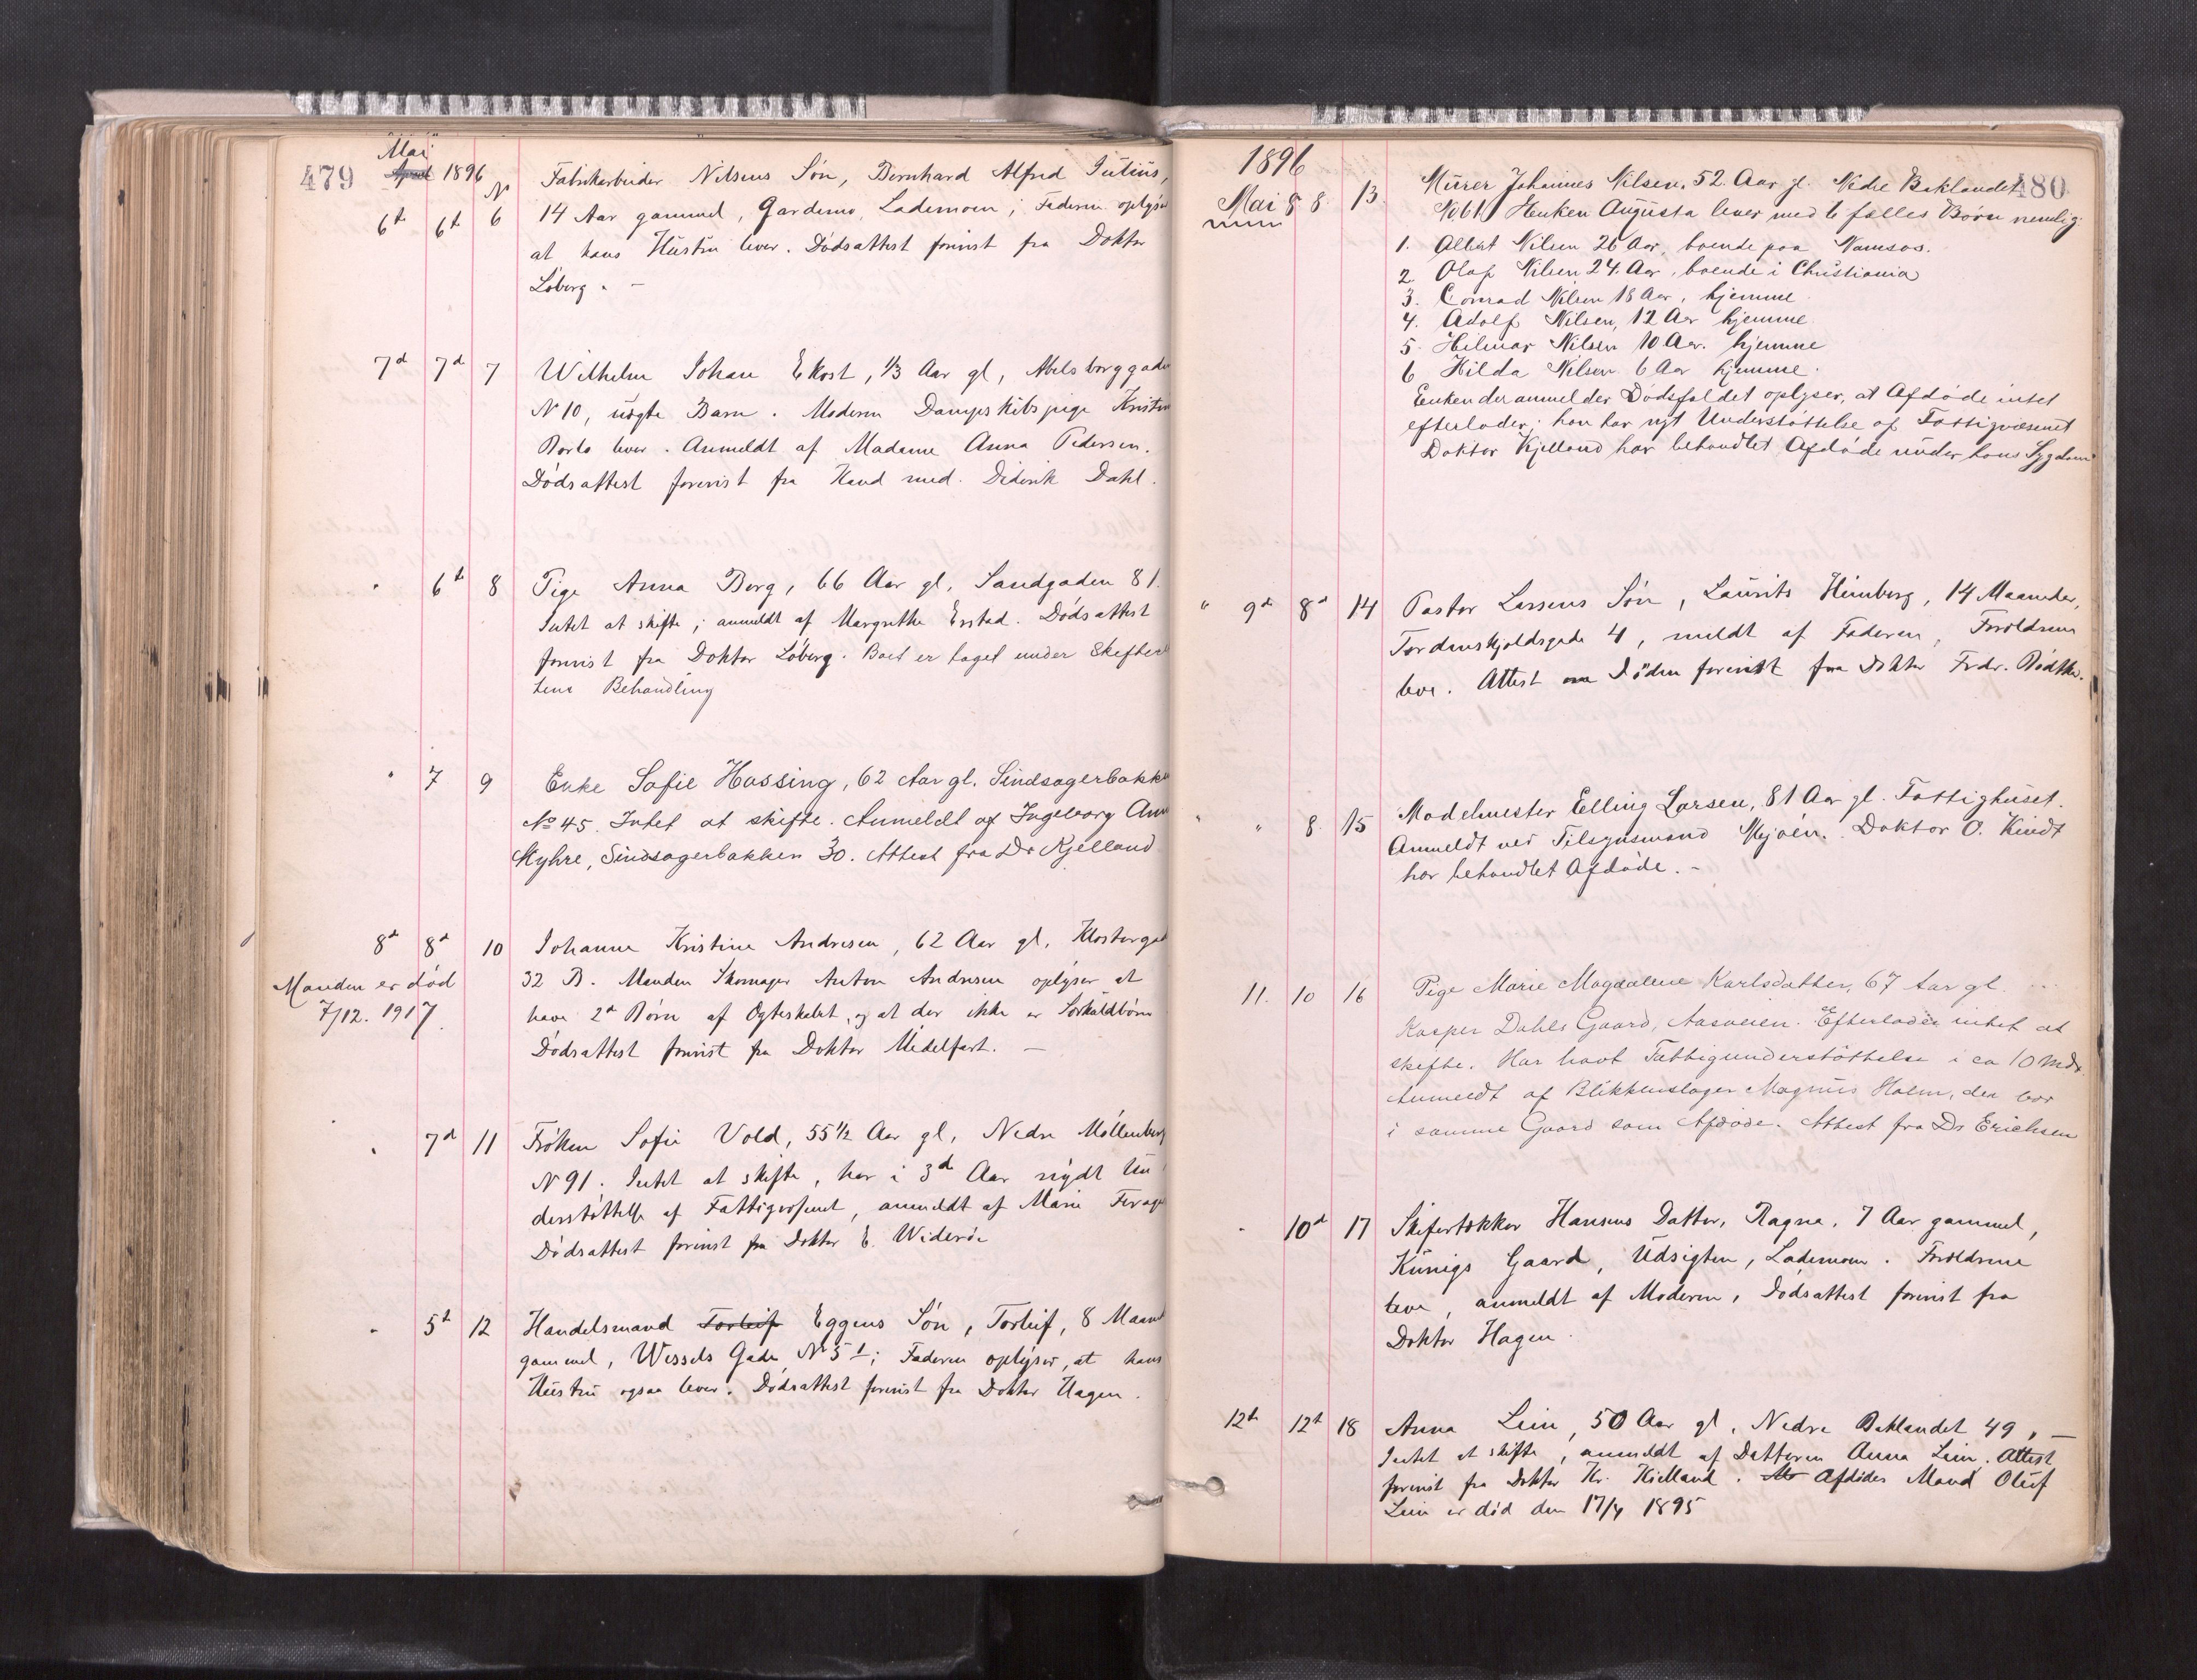 479
Mai
April 1896
N
6t 6t 6 Fabrikarbeider Nilsens Søn, Bernhard Alfred Julius,
14 Aar gammel, Gardemo, Lademoen; Faderen oplyser
at hans Hustru lever. Dødsattest forevist fra Doktor
Löberg. —
7d 7d 7 Wilhelm Johan Ekost, 1/3 Aar gl, Abelsborggaden
N 10, uægte Barn. Moderen Dampskibspige Kristin
lever. Anmeldt af Madame Anna Pedersen.
Dødsattest forevist fra Kand med. Didrik Dahl.
" 6t 8 Pige Anna Berg, 66 Aar gl, Sandgaden 81.
Intet at skifte; anmeldt af Margrethe Erstad. Dødsattest
forevist fra Doktor Löberg. Boet er taget under Skifteret
tens Behandling
" 7 9 Enke Sofie Hassing, 62 Aar gl. Sindsagerbakke
No 45. Intet at skifte. Anmeldt af Ingeborg Anna
Myhre, Sindsagerbakken 30. Attest fra Dr Kjelland
8d 8d 10 Johanne Kristine Andresen, 62 Aar gl, Klostergad
Manden er død
7/12. 1917.
32 B. Manden Skomager Anton Andresen oplyser at
have 2d Børn af Ægteskabet, og at der ikke er Særkuldbørn
Dødsattest forevist fra Doktor Midelfart. —
" 7d 11 Frøken Sofie Vold, 55 1/2 Aar gl, Nedre Møllenberg
N 91. Intet at skifte, har i 3d Aar nydt Un
derstøttelse af Fattigvæsenet, anmeldt af Marie
Dødsattest forevist fra Doktor E. Widerøe
" 5t 12 Handelsmand Torleif Eggens Søn, Torleif, 8 Maaned
gammel, Wessels Gade N 5 1; Faderen oplyser, at hans
Hustru ogsaa lever. Dødsattest forevist fra Doktor Hagen.
480
1896
Mai 8 8 13. Murer Johannes Nilsen, 52 Aar gl. Nedre Baklandet
No 61. Enken Augusta lever med 6 fælles Børn nemlig:
1. Albert Nilsen 26 Aar, boende paa Namsos.
2. Olaf Nilsen 24 Aar, boende i Christiania
3. Conrad Nilsen 18 Aar, hjemme
4. Adolf Nilsen, 12 Aar hjemme
5. Hilmar Nilsen 10 Aar. hjemme
6 Hilda Nilsen 6 Aar hjemme.
Enken der anmelder Dødsfaldet oplyser, at Afdøde intet
efterlader; han har nydt Understøttelse af Fattigvæsenet
Doktor Kjelland har behandlet Afdøde under hans Sygdom
" 9de 8d 14 Pastor Larsens Søn, Laurits Heimberg, 14 Maaneder,
Tordenskjoldsgade 4, meldt af Faderen, Forældrene
leve. Attest om Døden forevist fra Doktor Frdr. Rødtke.
" " 8 15 Modelmester Elling Larsen, 81 Aar gl. Fattighuset.
Anmeldt ved Tilsynsmand Mjøen. Doktor O. Kindt
har behandlet Afdøde. —
11. 10 16 Pige Marie Magdalene Karlsdatter, 67 Aar gl.
Kasper Dahls Gaard, Aasveien. Efterlader intet at
skifte. Har havt Fattigunderstøttelse i ca 10 Mdr.
Anmeldt af Blikkenslager Magnus Holm, der bor
i samme Gaard som Afdøde. Attest fra Dr Erichsen
" 10d 17 Skifertækker Hansens Datter, Ragna, 7 Aar gammel,
Künigs Gaard, Udsigten, Lademoen. Forældrene
leve, anmeldt af Moderen, Dødsattest forevist fra
Doktor Hagen.
12t 12t 18 Anna Lein, 50 Aar gl, Nedre Baklandet 49, —
Intet at skifte, anmeldt af Datteren Anna Lein. Attest
forevist fra Doktor Kr. Kielland. Afdødes Mand Oluf
Lein er død den 17/4 1895